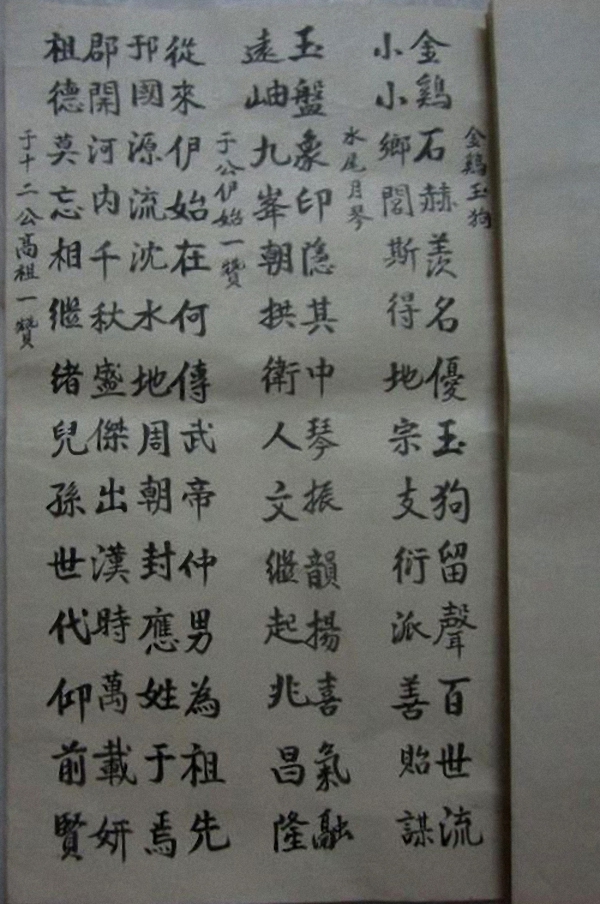 金鷄玉狗
金鷄石赫羨名優玉狗留聲百世流
小小鄉閭斯得地宗支衍派善貽謀
水尾月琴
玉盤象印隱其中琴振韻揚喜氣融
遠岫九峯朝拱衛人文繼起兆昌隆
于公伊始一贊
從來伊始在何傳武帝仲男為祖先
邘國源流沈水地周朝封應姓于焉
郡開河內千秋盛傑出漢時萬載妍
祖德莫忘相繼緒兒孫世代仰前賢
于十二公高祖一贊